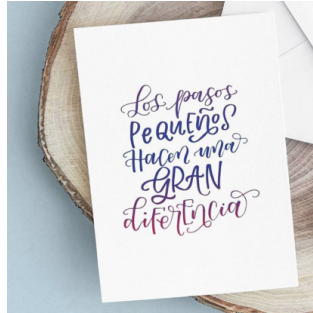 Los pasos
PeQUEÑoS
Hacen una
GRAN
diferencia